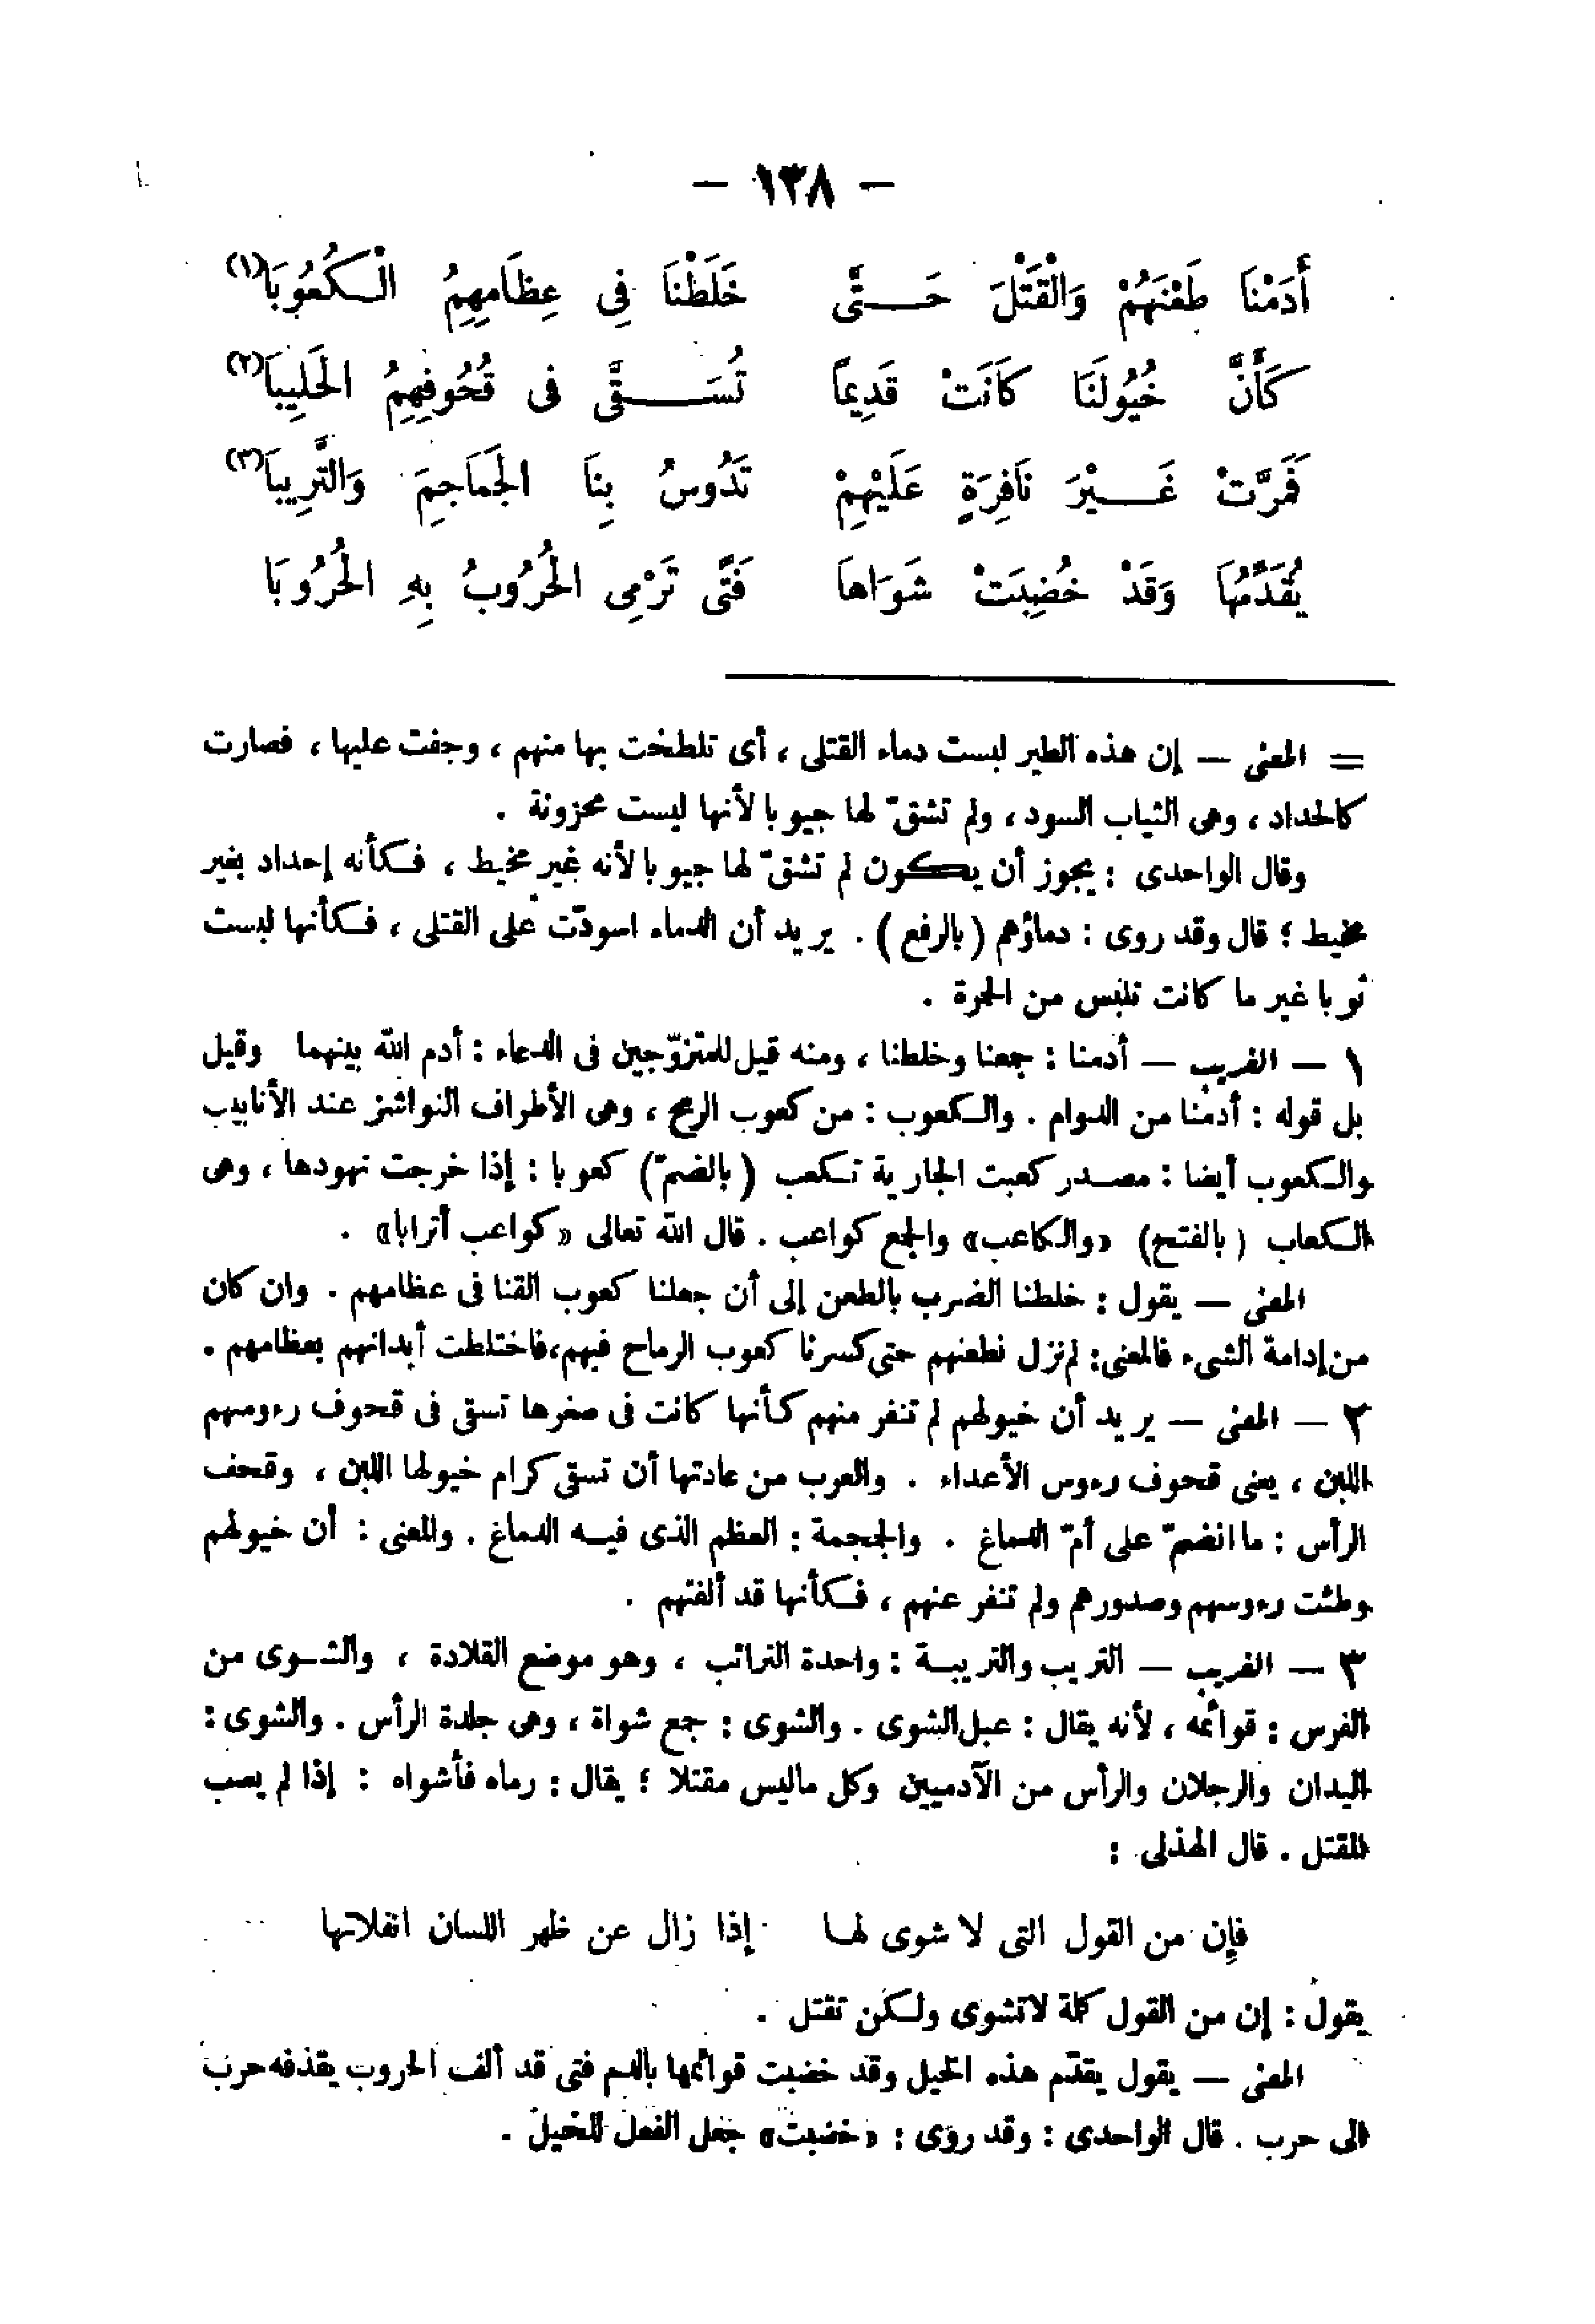 – ١٣٨ –
أَدَمْنَا طَعْنَهُمْ وَالْقَتْلَ حَــتَّى خَلَطْنَا فِى عِظَامِهِمُ الْـكُعُوبَا(١)
كَأَنَّ خُيُولَنَا كَانَتْ قَدِيماً تُسَــقَّى فى قُحُوفِهِمُ الْحَلِيبَا(٢)
فَمَرَّتْ غَــيْرَ نَافِرَةٍ عَلَيْهِمْ تَدُوسُ بِنَا الْجَمَاجِمَ وَالتَّرِيبَا(٣)
يُقَدِّمُهَا وَقَدْ خُضِبَتْ شَوَاهَا فَتًى تَرْمِى الْحُرُوبُ بِهِ الْحُرُوبَا
= المعنى – إن هذه الطير لبست دماء القتلى ، أى تلطخت بها منهم ، وجفت عليها ، فصارت
كالحداد ، وهى الثياب السود ، ولم تشقّ لها جيوبا لأنها ليست محزونة .
وقال الواحدى : يجوز أن يـكون لم تشقّ لها جيوبا لأنه غير مخيط ، فـكأنه إحداد بغير
مخيط ؛ قال وقد روى : دماؤهم (بالرفع) . يريد أن الدماء اسودّت على القتلى ، فـكأنها لبست
ثوبا غير ما كانت تلبس من الحمرة .
١ – الغريب – أدمنا : جمعنا وخلطنا ، ومنه قيل للمتزوّجين فى الدعاء : أدم الله بينهما وقيل
بل قوله : أدمنا من الدوام . والـكعوب : من كعوب الرمح ، وهى الأطراف النواشز عند الأنابيب
والـكعوب أيضا : مصـدر كعبت الجارية تـكعب (بالضمّ) كعوبا : إذا خرجت نهودها ، وهى
الـكعاب (بالفتح) «والـكاعب» والجمع كواعب . قال الله تعالى «كواعب أترابا» .
المعنى – يقول : خلطنا الضرب بالطعن إلى أن جعلنا كعوب القنا فى عظامهم . وان كان
من إدامة الشىء فالمعنى: لم نزل نطعنهم حتى كسرنا كعوب الرماح فيهم،فاختلطت أبدانهم بعظامهم .
٢ – المعنى – يريد أن خيولهم لم تنفر منهم كأنها كانت فى صغرها تسقى فى قحوف رءوسهم
اللبن ، يعنى قحوف رءوس الأعداء . والعرب من عادتها أن تسقى كرام خيولها اللبن ، وقحف
الرأس : ما انضمّ على أمّ الدماغ . والجمجمة : العظم الذى فيـه الدماغ . والمعنى : أن خيولهم
وطئت رءوسهم وصدورهم ولم تنفر عنهم ، فـكأنها قد ألفتهم .
٣ – الغريب – التريب والتريبـة : واحدة الترائب ، وهو موضع القلادة ، والشـوى من
الفرس : قوائمه ، لأنه يقال : عبل الشوى . والشوى : جمع شواة ، وهى جلدة الرأس . والشوى :
اليدان والرجلان والرأس من الآدميين وكل ماليس مقتلا ؛ يقال : رماه فأشواه : إذا لم يصب
المقتل . قال الهذلى :
فإن من القول التى لا شوى لهـا إذا زال عن ظهر اللسان انفلاتها
يقول : إن من القول كلمة لاتشوى ولـكن تقتل .
المعنى – يقول يقدّم هذه الخيل وقد خضبت قوائمها بالدم فتى قد ألف الحروب يقذفه حرب
الى حرب . قال الواحدى : وقد روى : «خضبت» جعل الفعل للخيل .